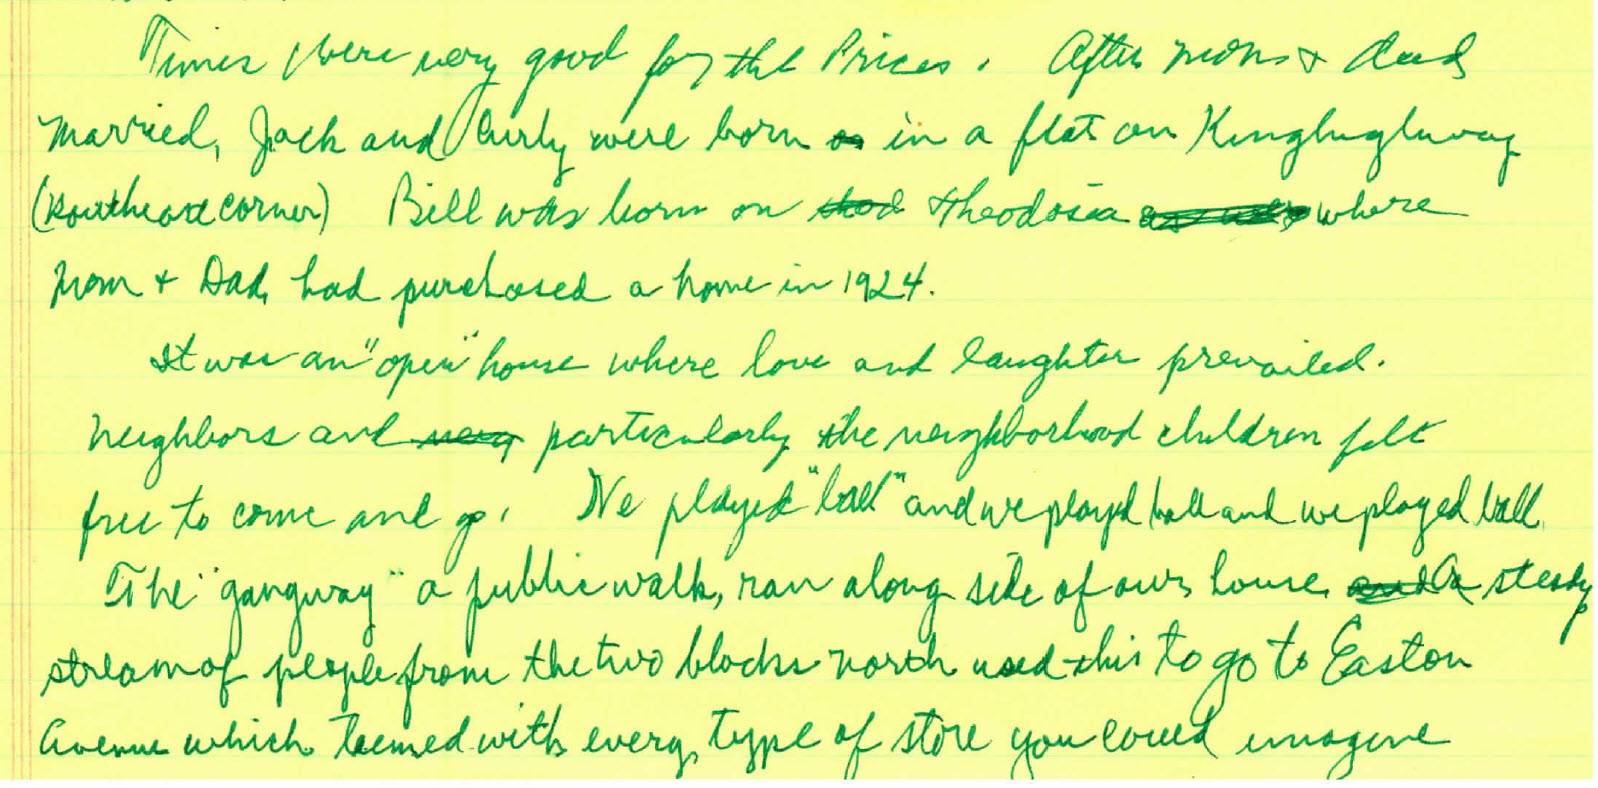 Times were very good for the Prices. After Mom + Dad
Married, Jack and Curly were born in a flat on Kinghighway
(Southeast corner) Bill was born on Theodosia where
Mom + Dad, had purchased a home in 1924.
It was an "open" house where love and laughter prevailed.
Neighbors and particularly the neighborhood children felt
free to come and go. We played "ball" and we played ball and we played ball.
The "gangway" a public walk, ran along side of our house. A steady
stream of people from the two blocks north used this to go to Easton
Avenue which teemed with every type of store you could imagine